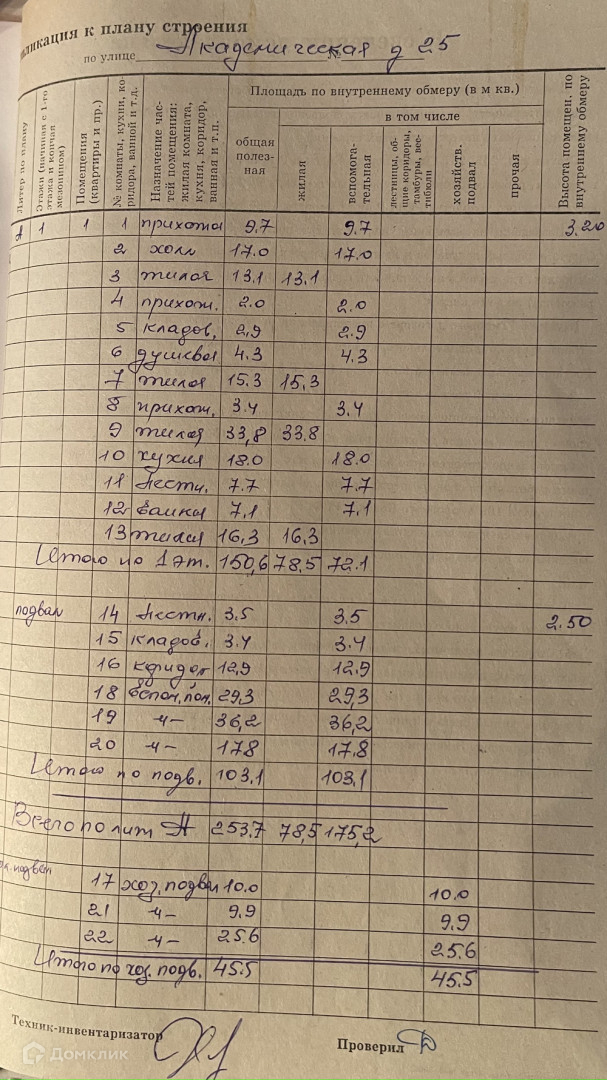 пликация к плану строения
по улице Академическая д 25
Литер по плану
Этажи (начиная с 1-го этажа и кончая мезонином)
Помещения (квартиры и пр.)
№ комнаты, кухни, коридора, ванной и т.д.
Назначение частей помещения: жилая комната, кухня, коридор, ванная и т.п.
Площадь по внутреннему обмеру (в м кв.)
общая полезная
в том числе
жилая
вспомогательная
лестницы, общие коридоры, тамбуры, вестибюли
хозяйств. подвал
прочая
Высота помещен. по внутреннему обмеру
А 1 1 1 прихожа 9.7 9.7 3.20
2 холл 17.0 17.0
3 жилая 13.1 13.1
4 прихож. 2.0 2.0
5 кладов. 2,9 2.9
6 душевая 4.3 4.3
7 жилая 15.3 15,3
8 прихож. 3.4 3.4
9 жилая 33,8 33.8
10 кухня 18.0 18.0
11 лестн. 7.7 7.7
12 ванная 7,1 7.1
13 жилая 16,3 16,3
Итого по 1 эт. 150,6 78,5 72.1
подвал 14 лестн. 3.5 3.5 2.50
15 кладов. 3.4 3.4
16 коридор 12,9 12.9
18 вспом. пом. 29,3 29,3
19 ч- 36,2 36,2
20 ч- 17.8 17.8
Итого по подв. 103,1 103,1
Всего по лит А 253.7 78,5 175,2
подвал
17 хоз. подвал 10.0 10.0
21 ч- 9.9 9.9
22 ч- 25.6 25.6
Итого по хоз. подв. 45.5 45.5
Техник-инвентаризатор
Проверил
Домклик